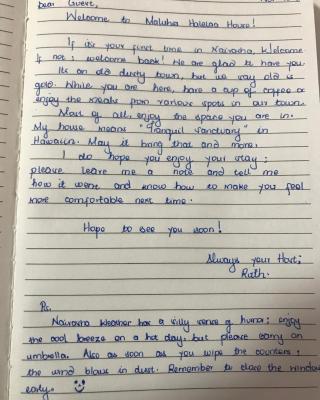 Dear Guest,
Welcome to Maluhia Haleiaa House!
If its your first time in Naivasha, Welcome
If not; welcome back! We are glad to have you.
Its an old dusty town, but we say old is
gold. While you are here, have a cup of coffee or
enjoy the meals from various spots in our town.
Most of all, enjoy the space you are in.
My house means "Tranquil Sanctuary" in
Hawaiian. May it bring that and more.
I do hope you enjoy your stay;
please leave me a note and tell me
how it went and know how to make you feel
more comfortable next time.
Hope to see you soon!
Always your Host;
Ps.
Naivasha Weather has a silly sense of humor; enjoy
the cool breeze on a hot day, but please carry an
umbrella. Also as soon as you wipe the counters;
the wind blows in dust. Remember to close the windows
early.